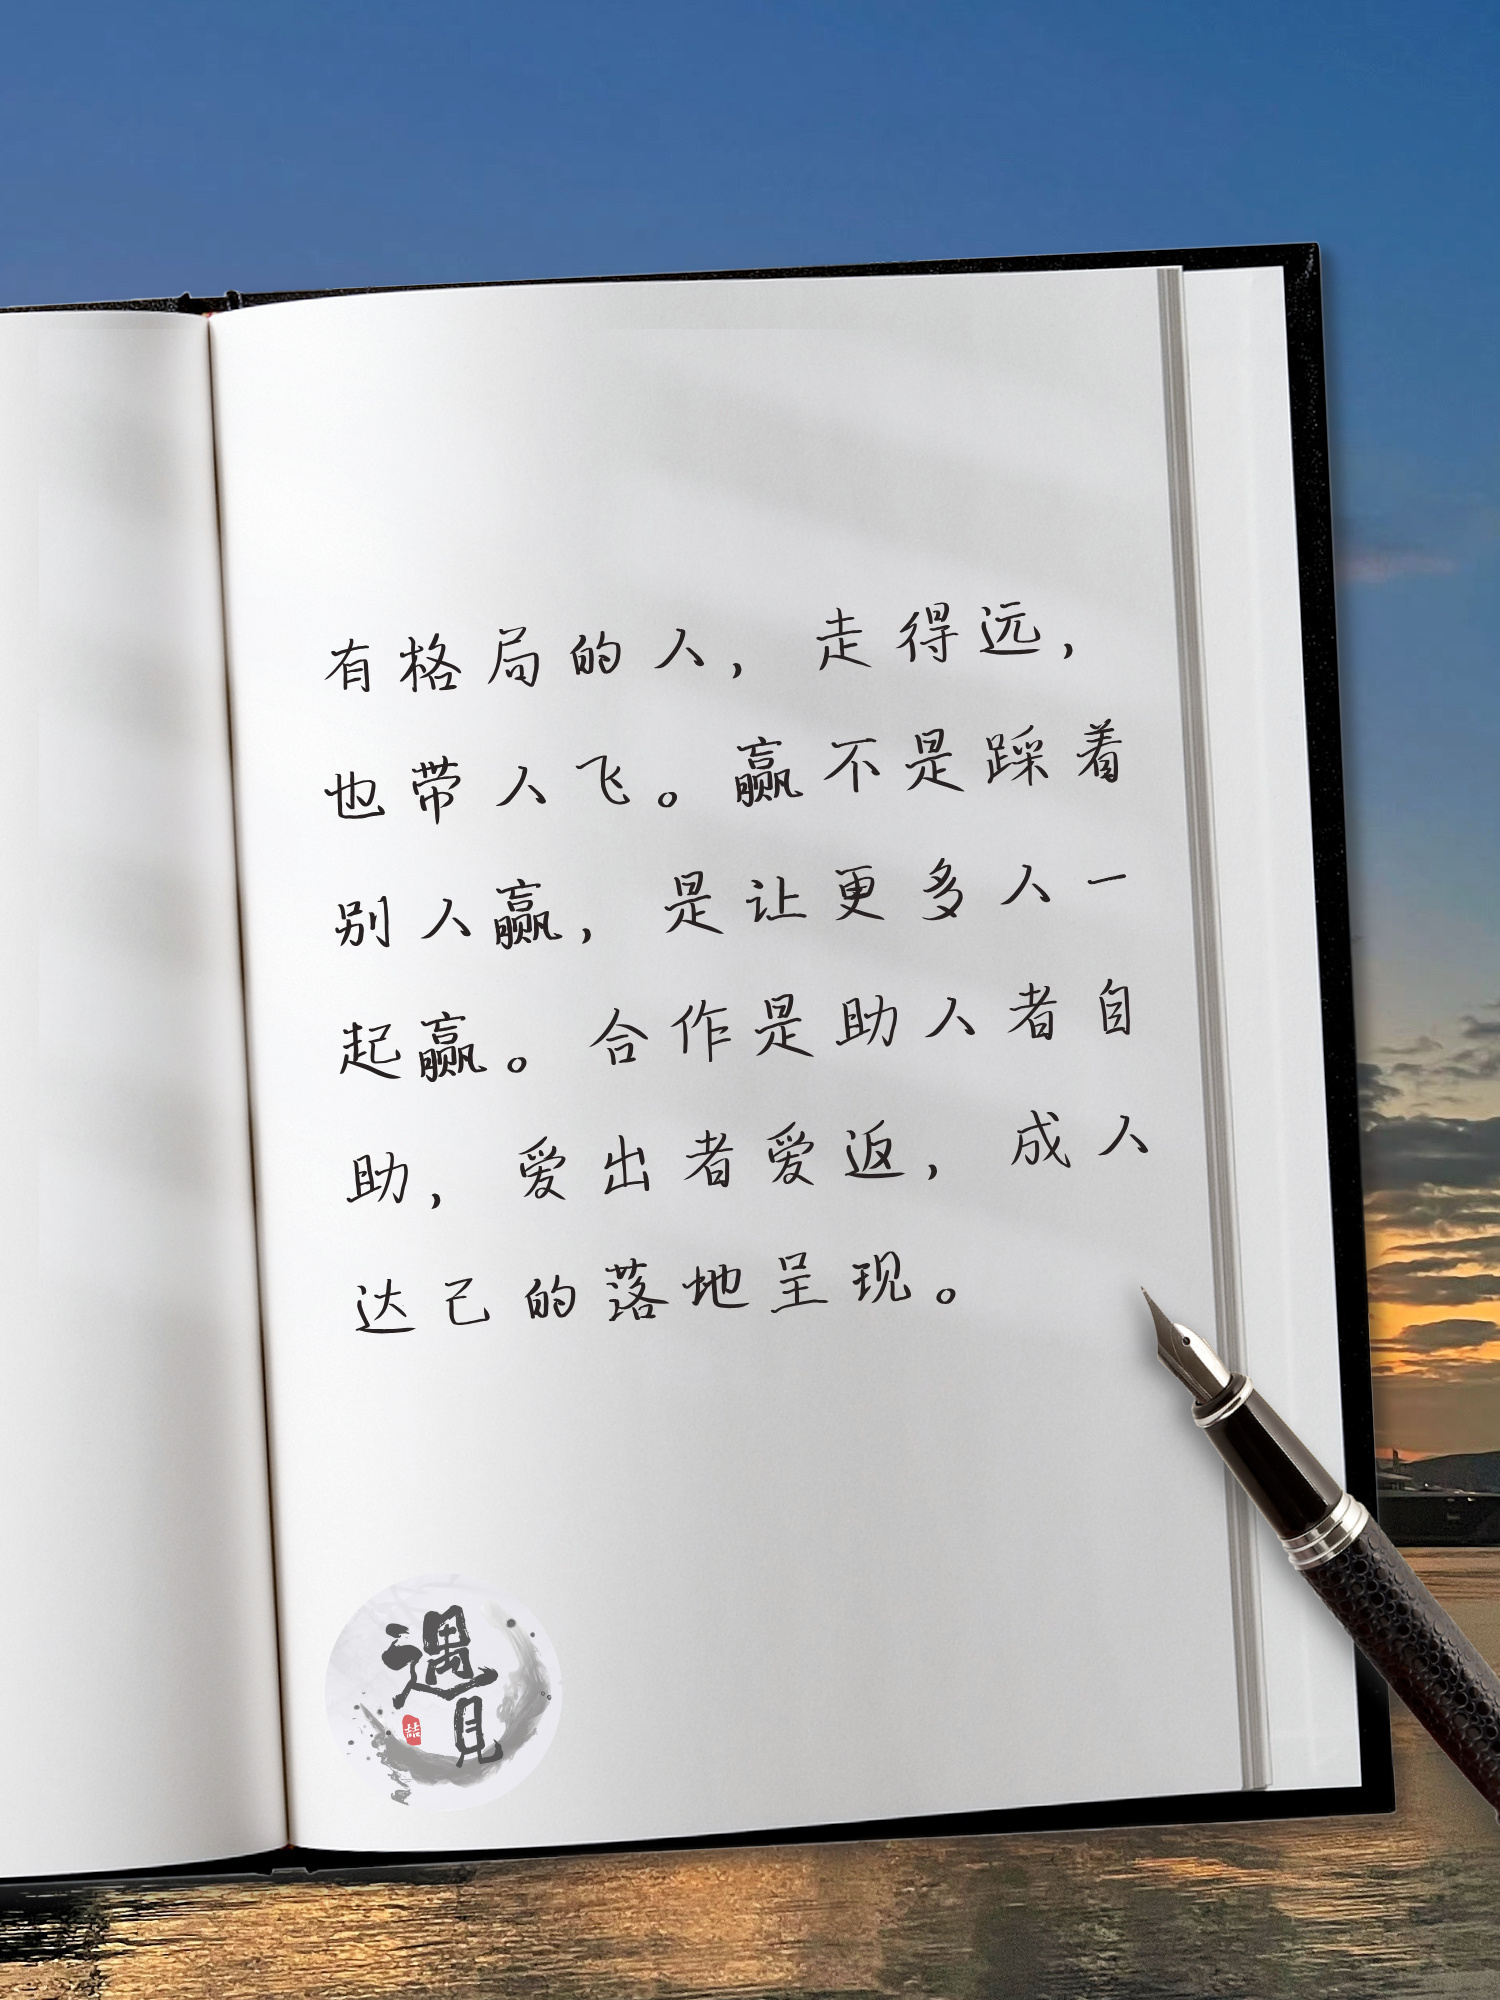 有格局的人，走得远，
也带人飞。赢不是踩着
别人赢，是让更多人一
起赢。合作是助人者自
助，爱出者爱返，成人
达己的落地呈现。
遇
見
喆